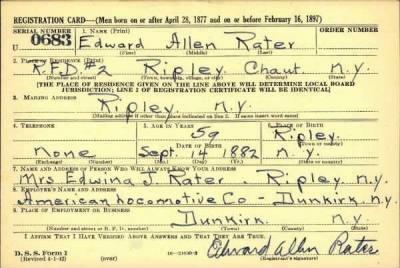 REGISTRATION CARD—(Men born on or after April 28, 1877 and on or before February 16, 1897)
SERIAL NUMBER 1. Name (Print) ORDER NUMBER
U 0683 Edward Allen Rater
(First) (Middle) (Last)
2. Place of Residence (Print)
R.F.D. #2 Ripley Chaut. N.Y.
(Number and street) (Town, township, village, or city) (County) (State)
[THE PLACE OF RESIDENCE GIVEN ON THE LINE ABOVE WILL DETERMINE LOCAL BOARD
JURISDICTION; LINE 2 OF REGISTRATION CERTIFICATE WILL BE IDENTICAL]
3. Mailing Address
Ripley N.Y.
[Mailing address if other than place indicated on line 2. If same insert word same]
4. Telephone 5. Age in Years 6. Place of Birth
59 Ripley
Date of Birth (Town or county)
None Sept. 14 1882 N.Y.
(Exchange) (Number) (Mo.) (Day) (Yr.) (State or country)
7. Name and Address of Person Who Will Always Know Your Address
Mrs Edwina J. Rater Ripley N.Y.
8. Employer's Name and Address
American Locomotive Co - Dunkirk N.Y.
9. Place of Employment or Business
Dunkirk N.Y.
(Number and street or R. F. D. number) (Town) (County) (State)
I Affirm That I Have Verified Above Answers and That They Are True.
D. S. S. Form 1
(Revised 4-1-42) (over) Edward Allen Rater
(Registrant's signature)